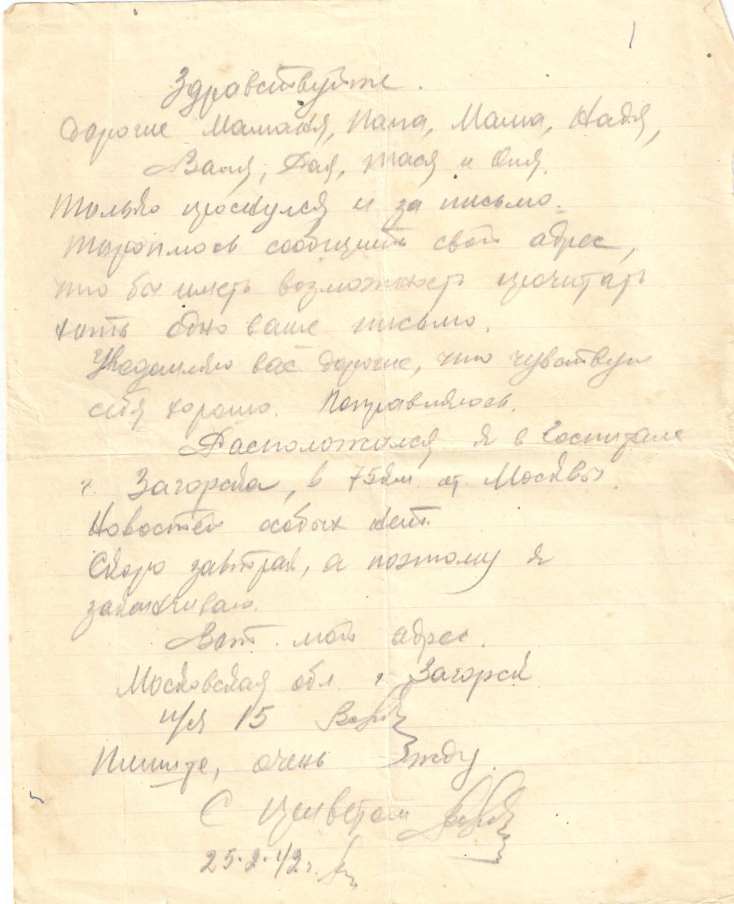 1
Здравствуйте.
Дорогие Маманя, Папа, Маша, Надя,
Валя, Рая, Тася и Оля.
Только проснулся и за письмо.
Тороплюсь сообщить свой адрес,
что бы иметь возможность прочитать
хоть одно ваше письмо.
Уведомляю вас дорогие, что чувствую
себя хорошо. Поправляюсь.
Расположился я в госпитале
г. Загорска, в 75км от Москвы.
Новостей особых нет.
Скоро завтрак, а поэтому я
заканчиваю.
Вот мой адрес.
Московская обл. г Загорск
п/я 15
Пишите, очень жду.
С приветом
25.2.42г.